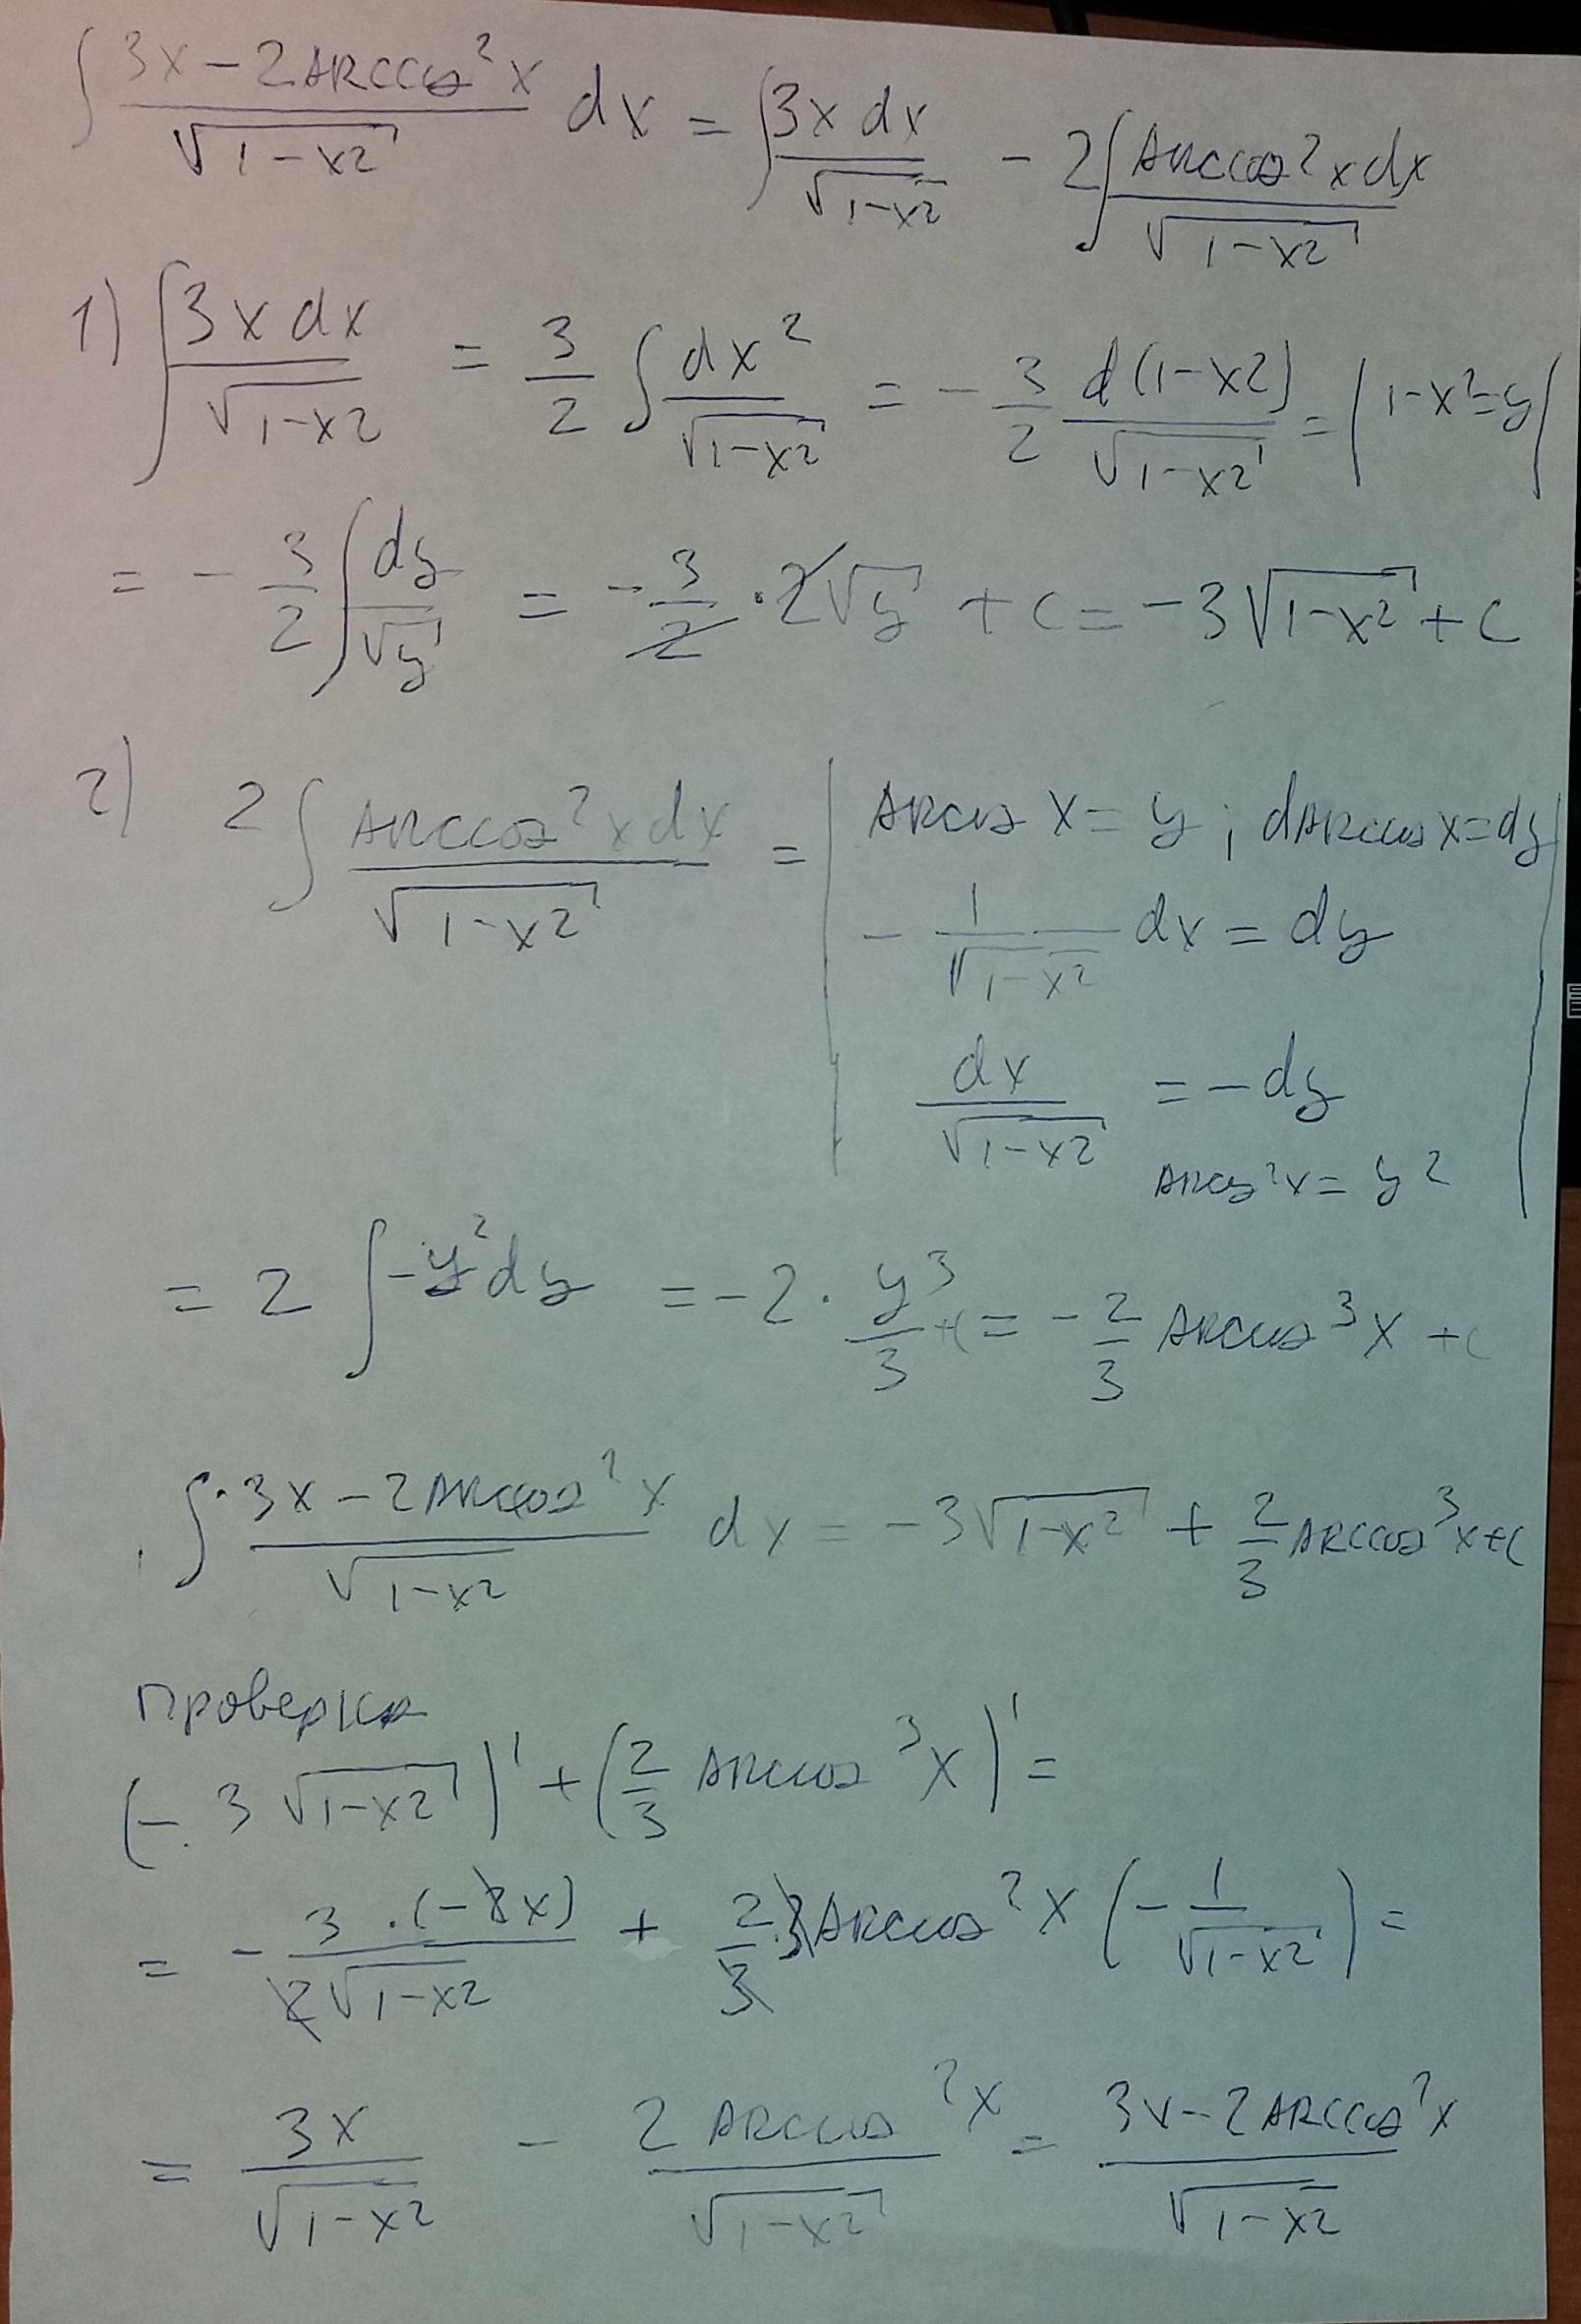 ∫ (3x − 2ARCCOS²x)/√(1−x2) dx = ∫ 3x dx/√(1−x2) − 2∫ ARCCOS²x dx/√(1−x2)
1) ∫ 3x dx/√(1−x2) = 3/2 ∫ dx²/√(1−x2) = − 3/2 d(1−x2)/√(1−x2) = |1−x²=y|
= − 3/2 ∫ dy/√y = − 3/2 · 2√y + C = −3√(1−x2) + C
2) 2∫ ARCCOS²x dx/√(1−x2) = | ARCCOS x = y ; dARCCOS x = dy
− 1/√(1−x2) dx = dy
dx/√(1−x2) = −dy
ARCCOS²x = y² |
= 2 ∫ −y² dy = −2 · y³/3 + C = − 2/3 ARCCOS³x + C
∫ (3x − 2ARCCOS²x)/√(1−x2) dx = −3√(1−x²) + 2/3 ARCCOS³x + C
проверка
(− 3√(1−x2))' + (2/3 ARCCOS³x)' =
= − 3·(−2x)/2√(1−x2) + 2/3·3ARCCOS²x (− 1/√(1−x2)) =
= 3x/√(1−x2) − 2ARCCOS²x/√(1−x2) = (3x − 2ARCCOS²x)/√(1−x2)